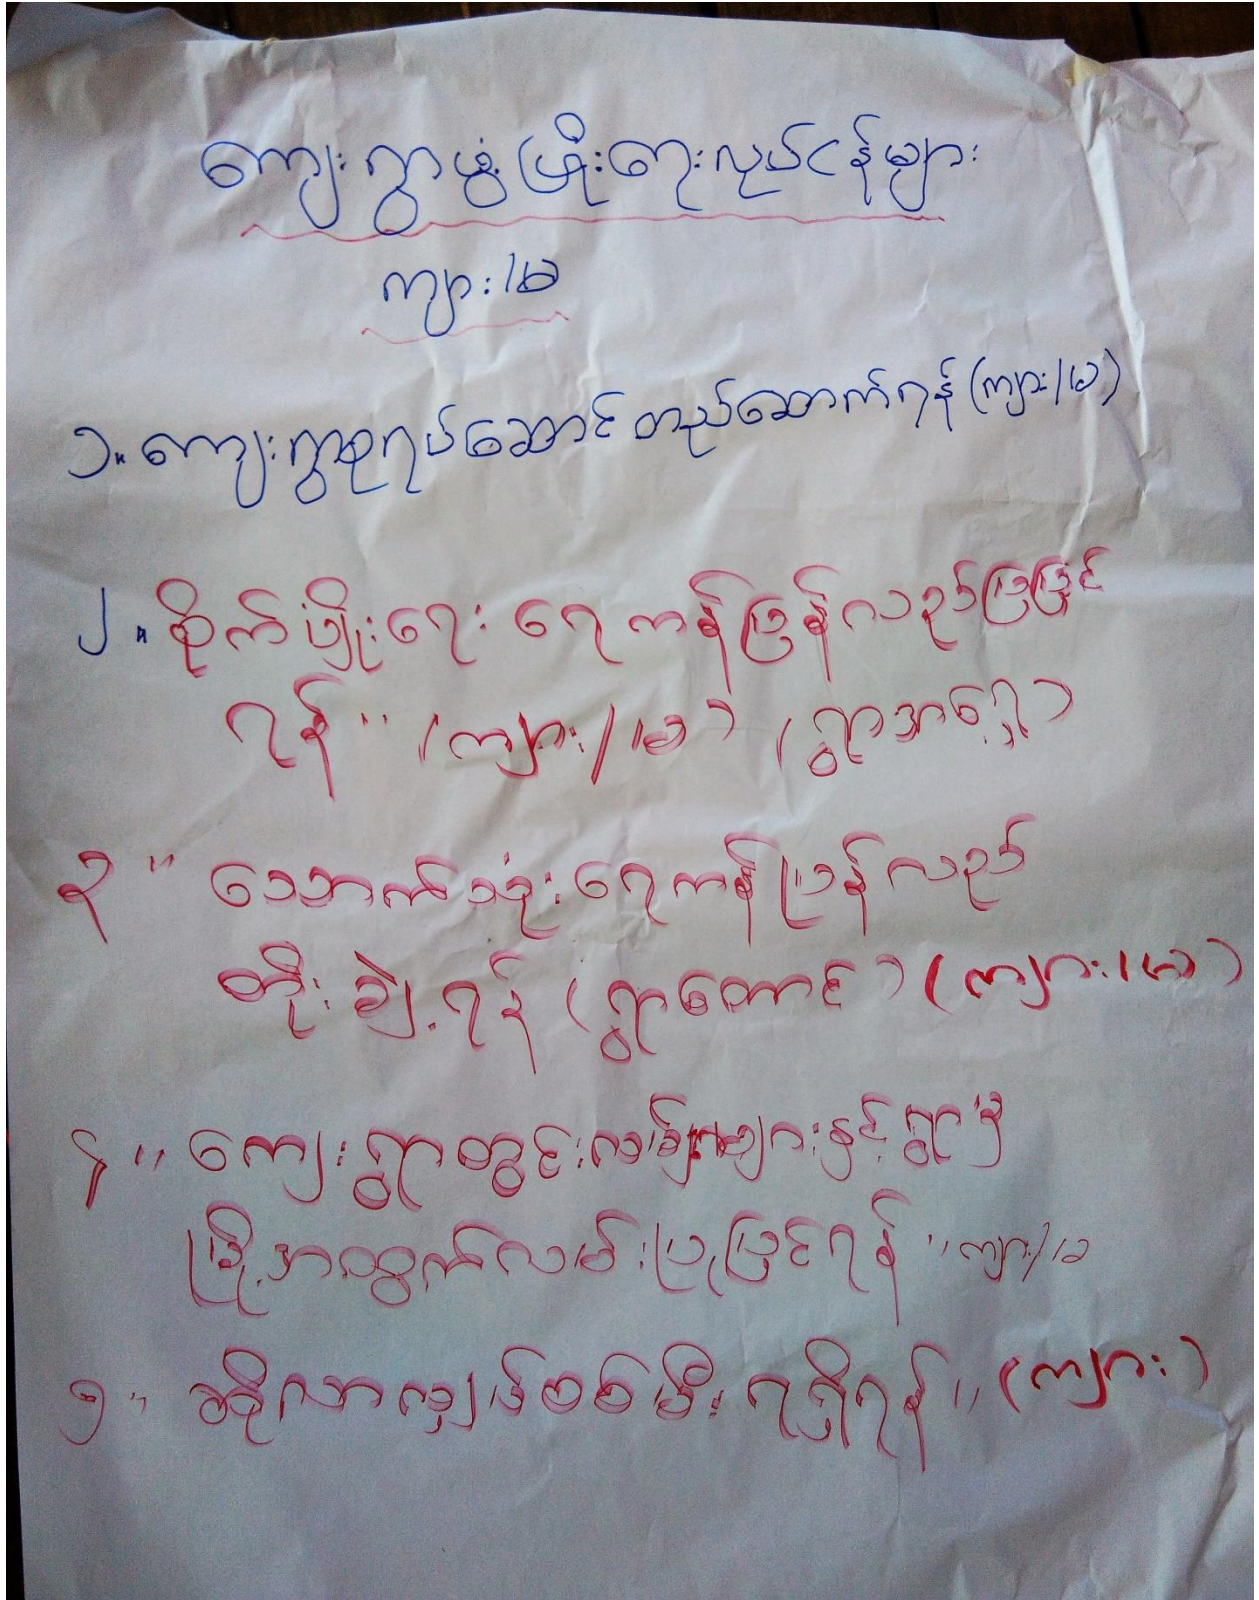 ကျေးရွာဖွံ့ဖြိုးရေးလုပ်ငန်းများ
ကျား/မ
၁။ ကျေးရွာစုရပ်ဆောင်တည်ဆောက်ရန် (ကျား/မ)
၂။ စိုက်ပျိုးရေး ရေကန်ပြန်လည်ပြုပြင်
ရန်။ (ကျား/မ) (ရွာအရှေ့)
၃။ သောက်သုံးရေကန်ပြန်လည်
တိုးချဲ့ရန် (ရွာတောင်) (ကျား/မ)
၄။ ကျေးရွာတွင်းလမ်းများနှင့်ရွာမှ
မြို့အထွက်လမ်းပြုပြင်ရန်။ ကျား/မ
၅။ ဆိုလာလျှပ်စစ်မီး ရရှိရန်။ (ကျား)